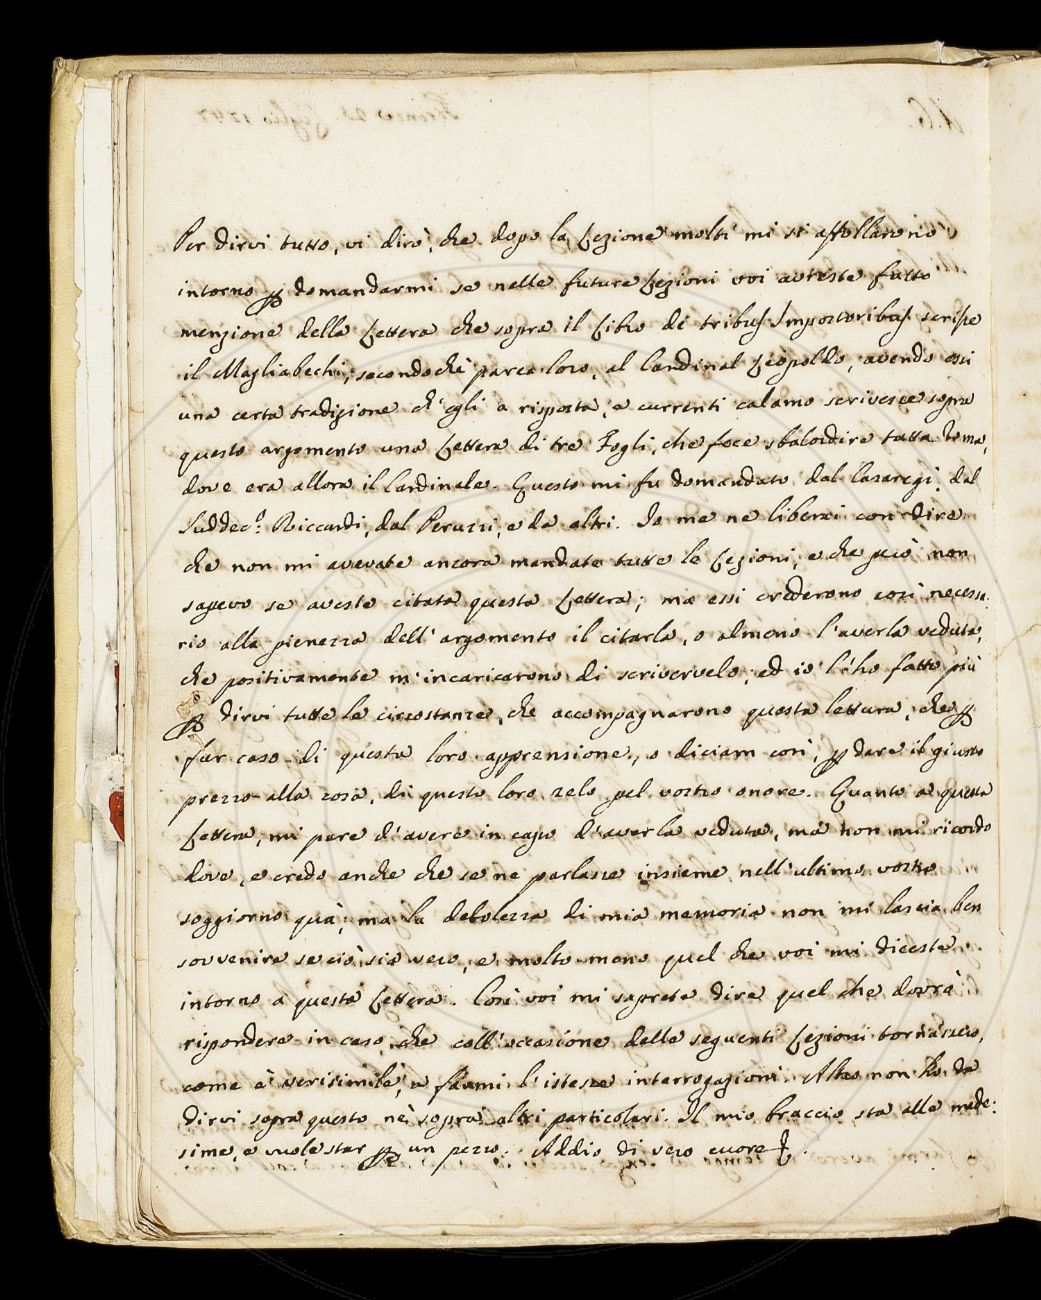 Per dirvi tutto, vi dirò, che dopo la Lezione molti mi si affollarono
intorno per domandarmi se nelle future Lezioni voi avreste fatto
menzione della Lettera che sopra il Libro de tribus Impostoribus scrisse
il Magliabechi, secondochè parea loro, al Cardinal Leopoldo, avendo essi
una certa tradizione ch'egli a risposta, e currenti calamo scrivesse sopra
questo argomento una Lettera di tre Fogli, che fece sbalordire tutta Roma,
dove era allora il Cardinale. Questo mi fu domandato dal Casaregi, dal
Suddec.º Riccardi, dal Peruzzi, e da altri. Io me ne liberai con dire
che non mi avevate ancora mandate tutte le Lezioni, e che però non
sapevo se aveste citata questa Lettera; ma essi crederono così necessa-
rio alla pienezza dell'argomento il citarla, o almeno l'averla veduta,
che positivamente m'incaricarono di scrivervelo; ed io l'ho fatto più
per dirvi tutte le circostanze, che accompagnarono questa lettura, che per
far caso di questa loro apprensione, o diciam così, per dare il giusto
prezzo alla cosa, di questo loro zelo pel vostro onore. Quanto a questa
Lettera, mi pare d'avere in capo d'averla veduta, ma non mi ricordo
dove, e credo anche che se ne parlasse insieme nell'ultimo vostro
soggiorno quà; ma la debolezza di mia memoria non mi lascia ben
sovvenire se ciò sia vero, e molto meno quel che voi mi diceste
intorno a questa Lettera. Così voi mi saprete dire quel che dovrò
rispondere in caso, che coll'occasione delle seguenti Lezioni tornassero,
come è verisimile, a farmi l'istesse interrogazioni. Altro non ho da
dirvi sopra questo nè sopra altri particolari. Il mio braccio sta alle mede-
sime, e vuole star per un pezzo. Addio di vero cuore